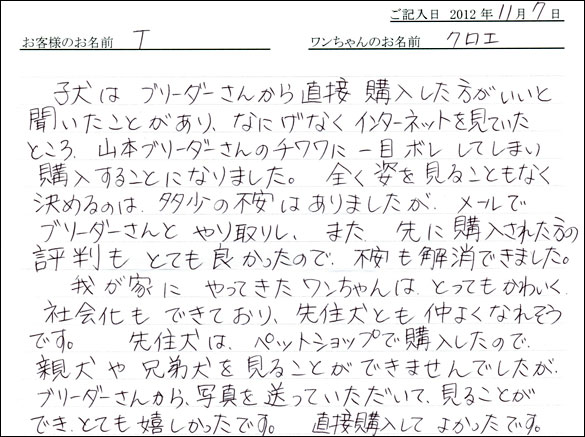 ご記入日 2012年11月7日
お客様のお名前 T ワンちゃんのお名前 クロエ
子犬は ブリーダーさんから直接 購入した方がいいと
聞いたことがあり、なにげなく インターネットを見ていた
ところ、山本ブリーダーさんのチワワに一目ボレしてしまい
購入することになりました。 全く姿を見ることもなく
決めるのは、多少の不安はありましたが、メールで
ブリーダーさんと やり取りし、また、先に購入された方の
評判も とても良かったので、不安も解消できました。
我が家に やってきた ワンちゃんは、とってもかわいく、
社会化も できており、先住犬とも 仲よくなれそう
です。 先住犬は、ペットショップで購入したので、
親犬や兄弟犬を見ることができませんでしたが、
ブリーダーさんから、写真を送っていただいて、見ることが
でき、とても嬉しかったです。 直接購入して よかったです。